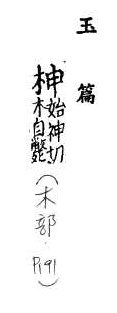 玉篇
柛始神切木自斃(木部·P191)